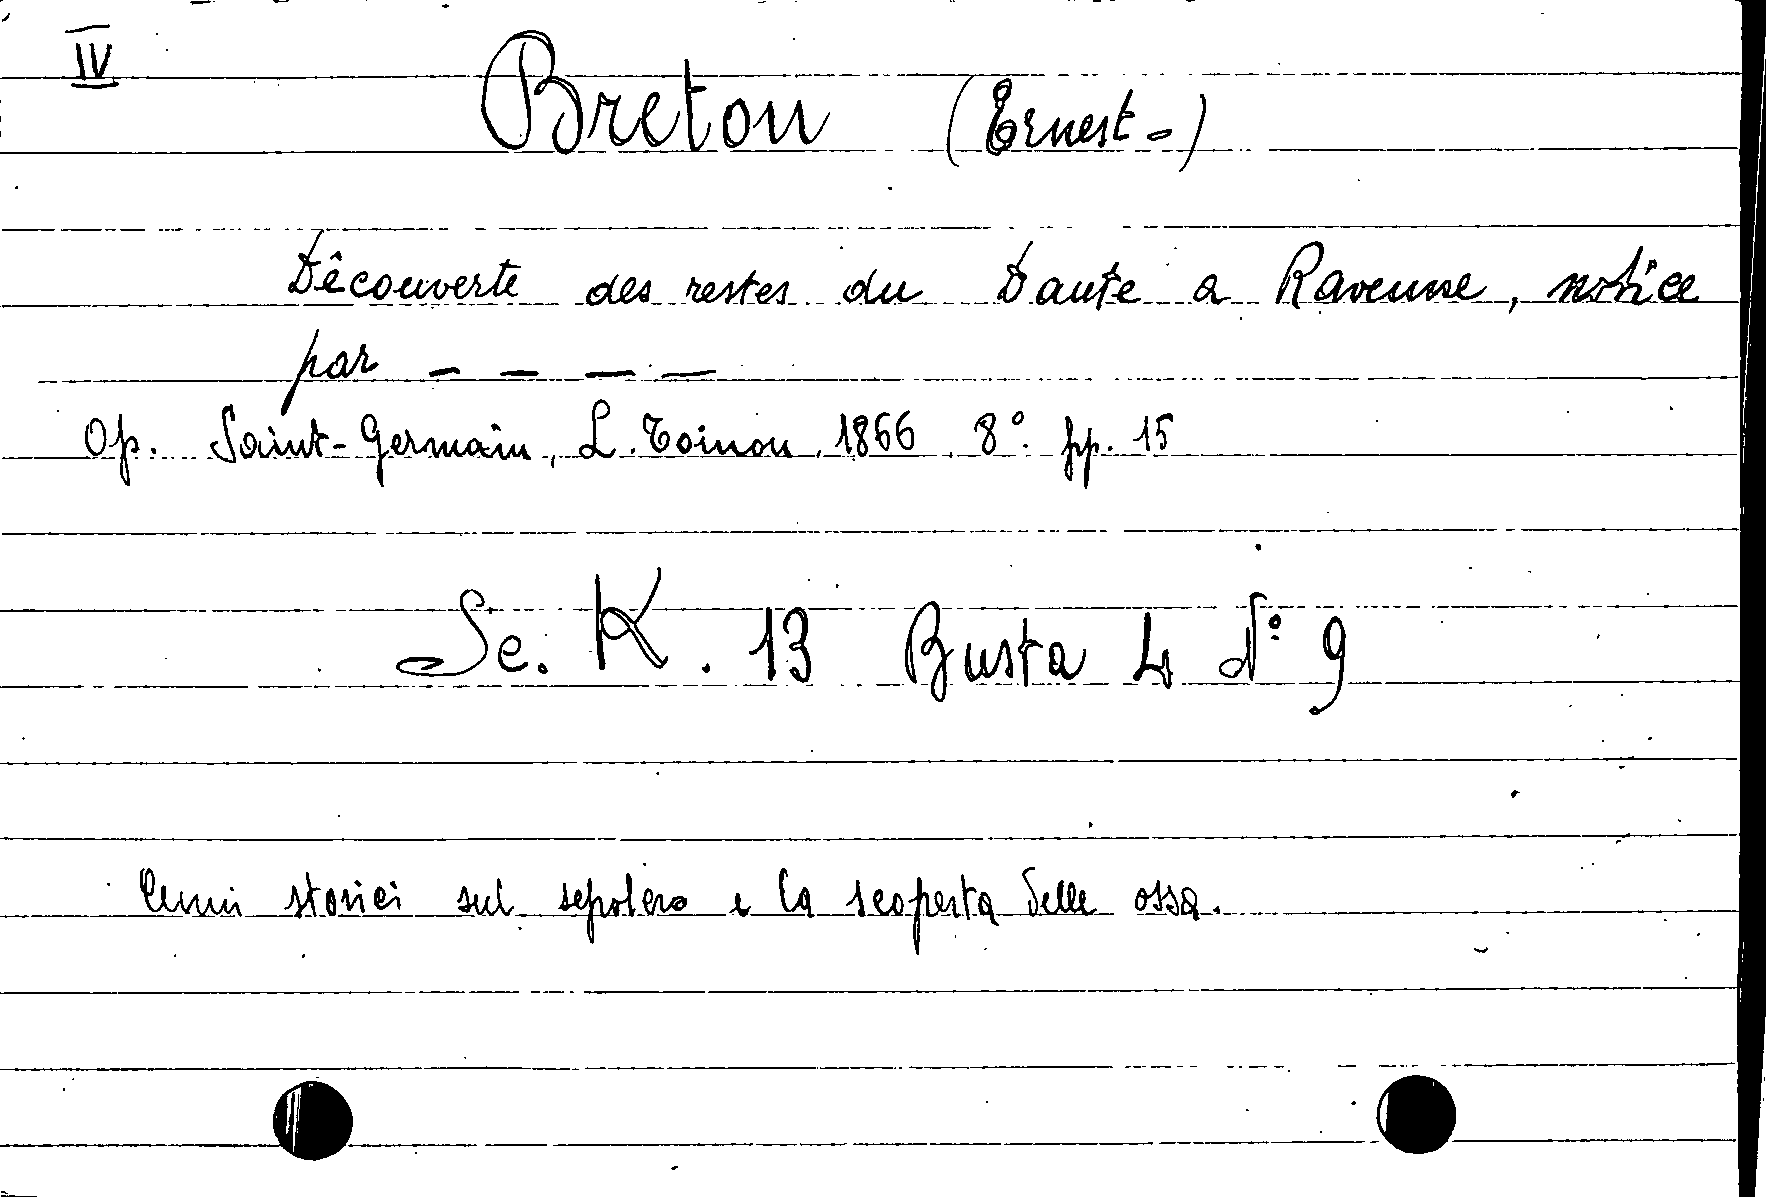 IV
Breton (Ernest-)
Dêcouverte des restes du Dante a Ravenne, notice
par — — — —
Op. Saint-Germain, L. Toinon, 1866, 8°. pp. 15
Sc. K. 13 Busta 4 N° 9
Cenni storici sul sepolcro e la scoperta delle ossa.